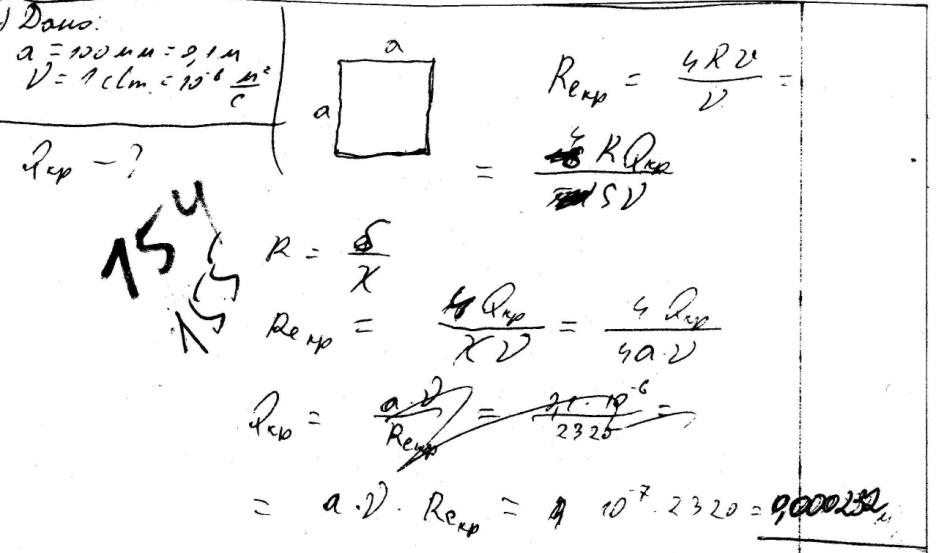 Дано:
a = 100 мм = 0,1 м
ν = 1 сСт. = 10⁻⁶ м²/с
Qкр – ?
a
a
Reкр = 4Rv/ν =
= 4RQкр/Sν
154
155
R = S/χ
Reкр = 4Qкр/χν = 4Qкр/4a·ν
Qкр = a·ν/Reкр = 0,1·10⁻⁶/2320 =
= a·ν·Reкр = 10⁻⁷·2320 = 0,000232